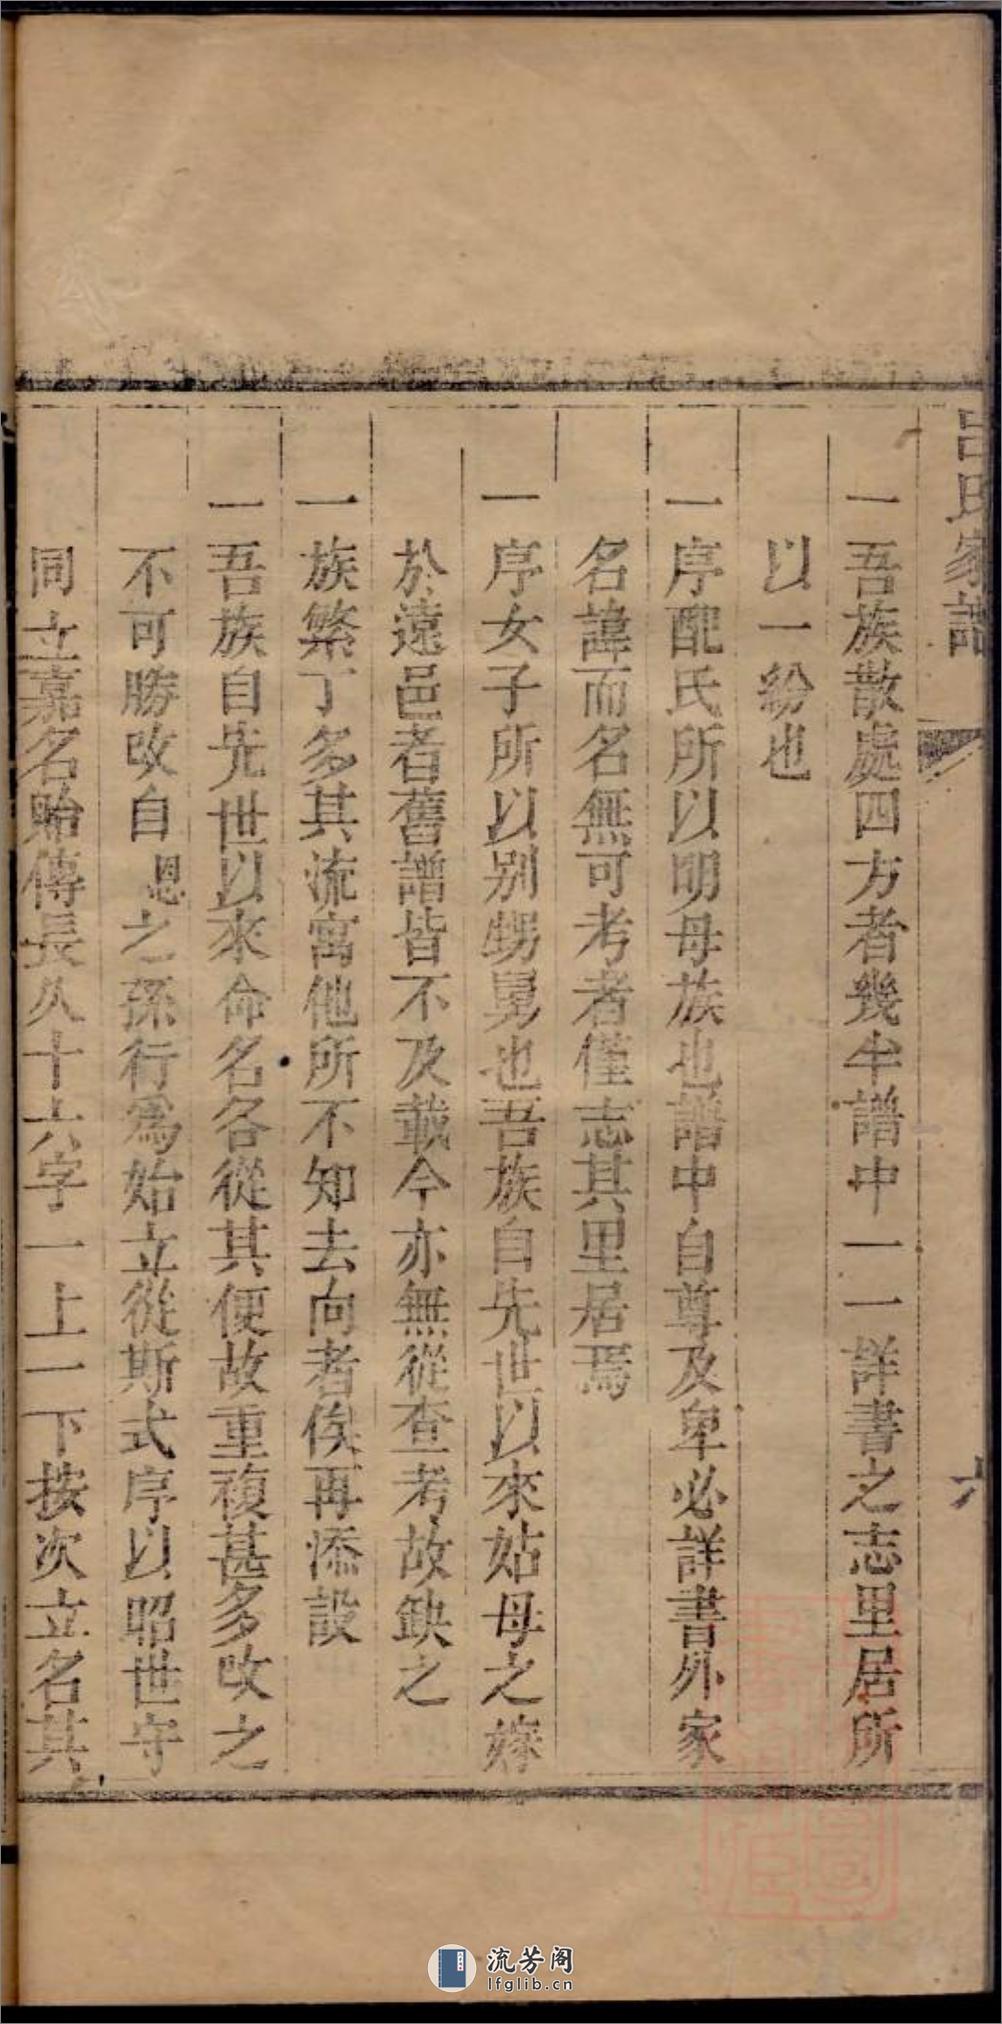 呂氏家譜
六
一吾族散處四方者幾半譜中一一詳書之志里居所
以一紛也
一序配氏所以明母族也譜中自尊及卑必詳書外家
名諱而名無可考者僅志其里居焉
一序女子所以別甥舅也吾族自先世以來姑母之嫁
於遠邑者舊譜皆不及載今亦無從查考故缺之
一族繁丁多其流寓他所不知去向者俟再添設
一吾族自先世以來命名各從其便故重複甚多改之
不可勝改自恩之孫行爲始立從斯式序以昭世守
同立嘉名貽傳長久十六字一上一下按次立名其
流芳阁
lfglib.cn